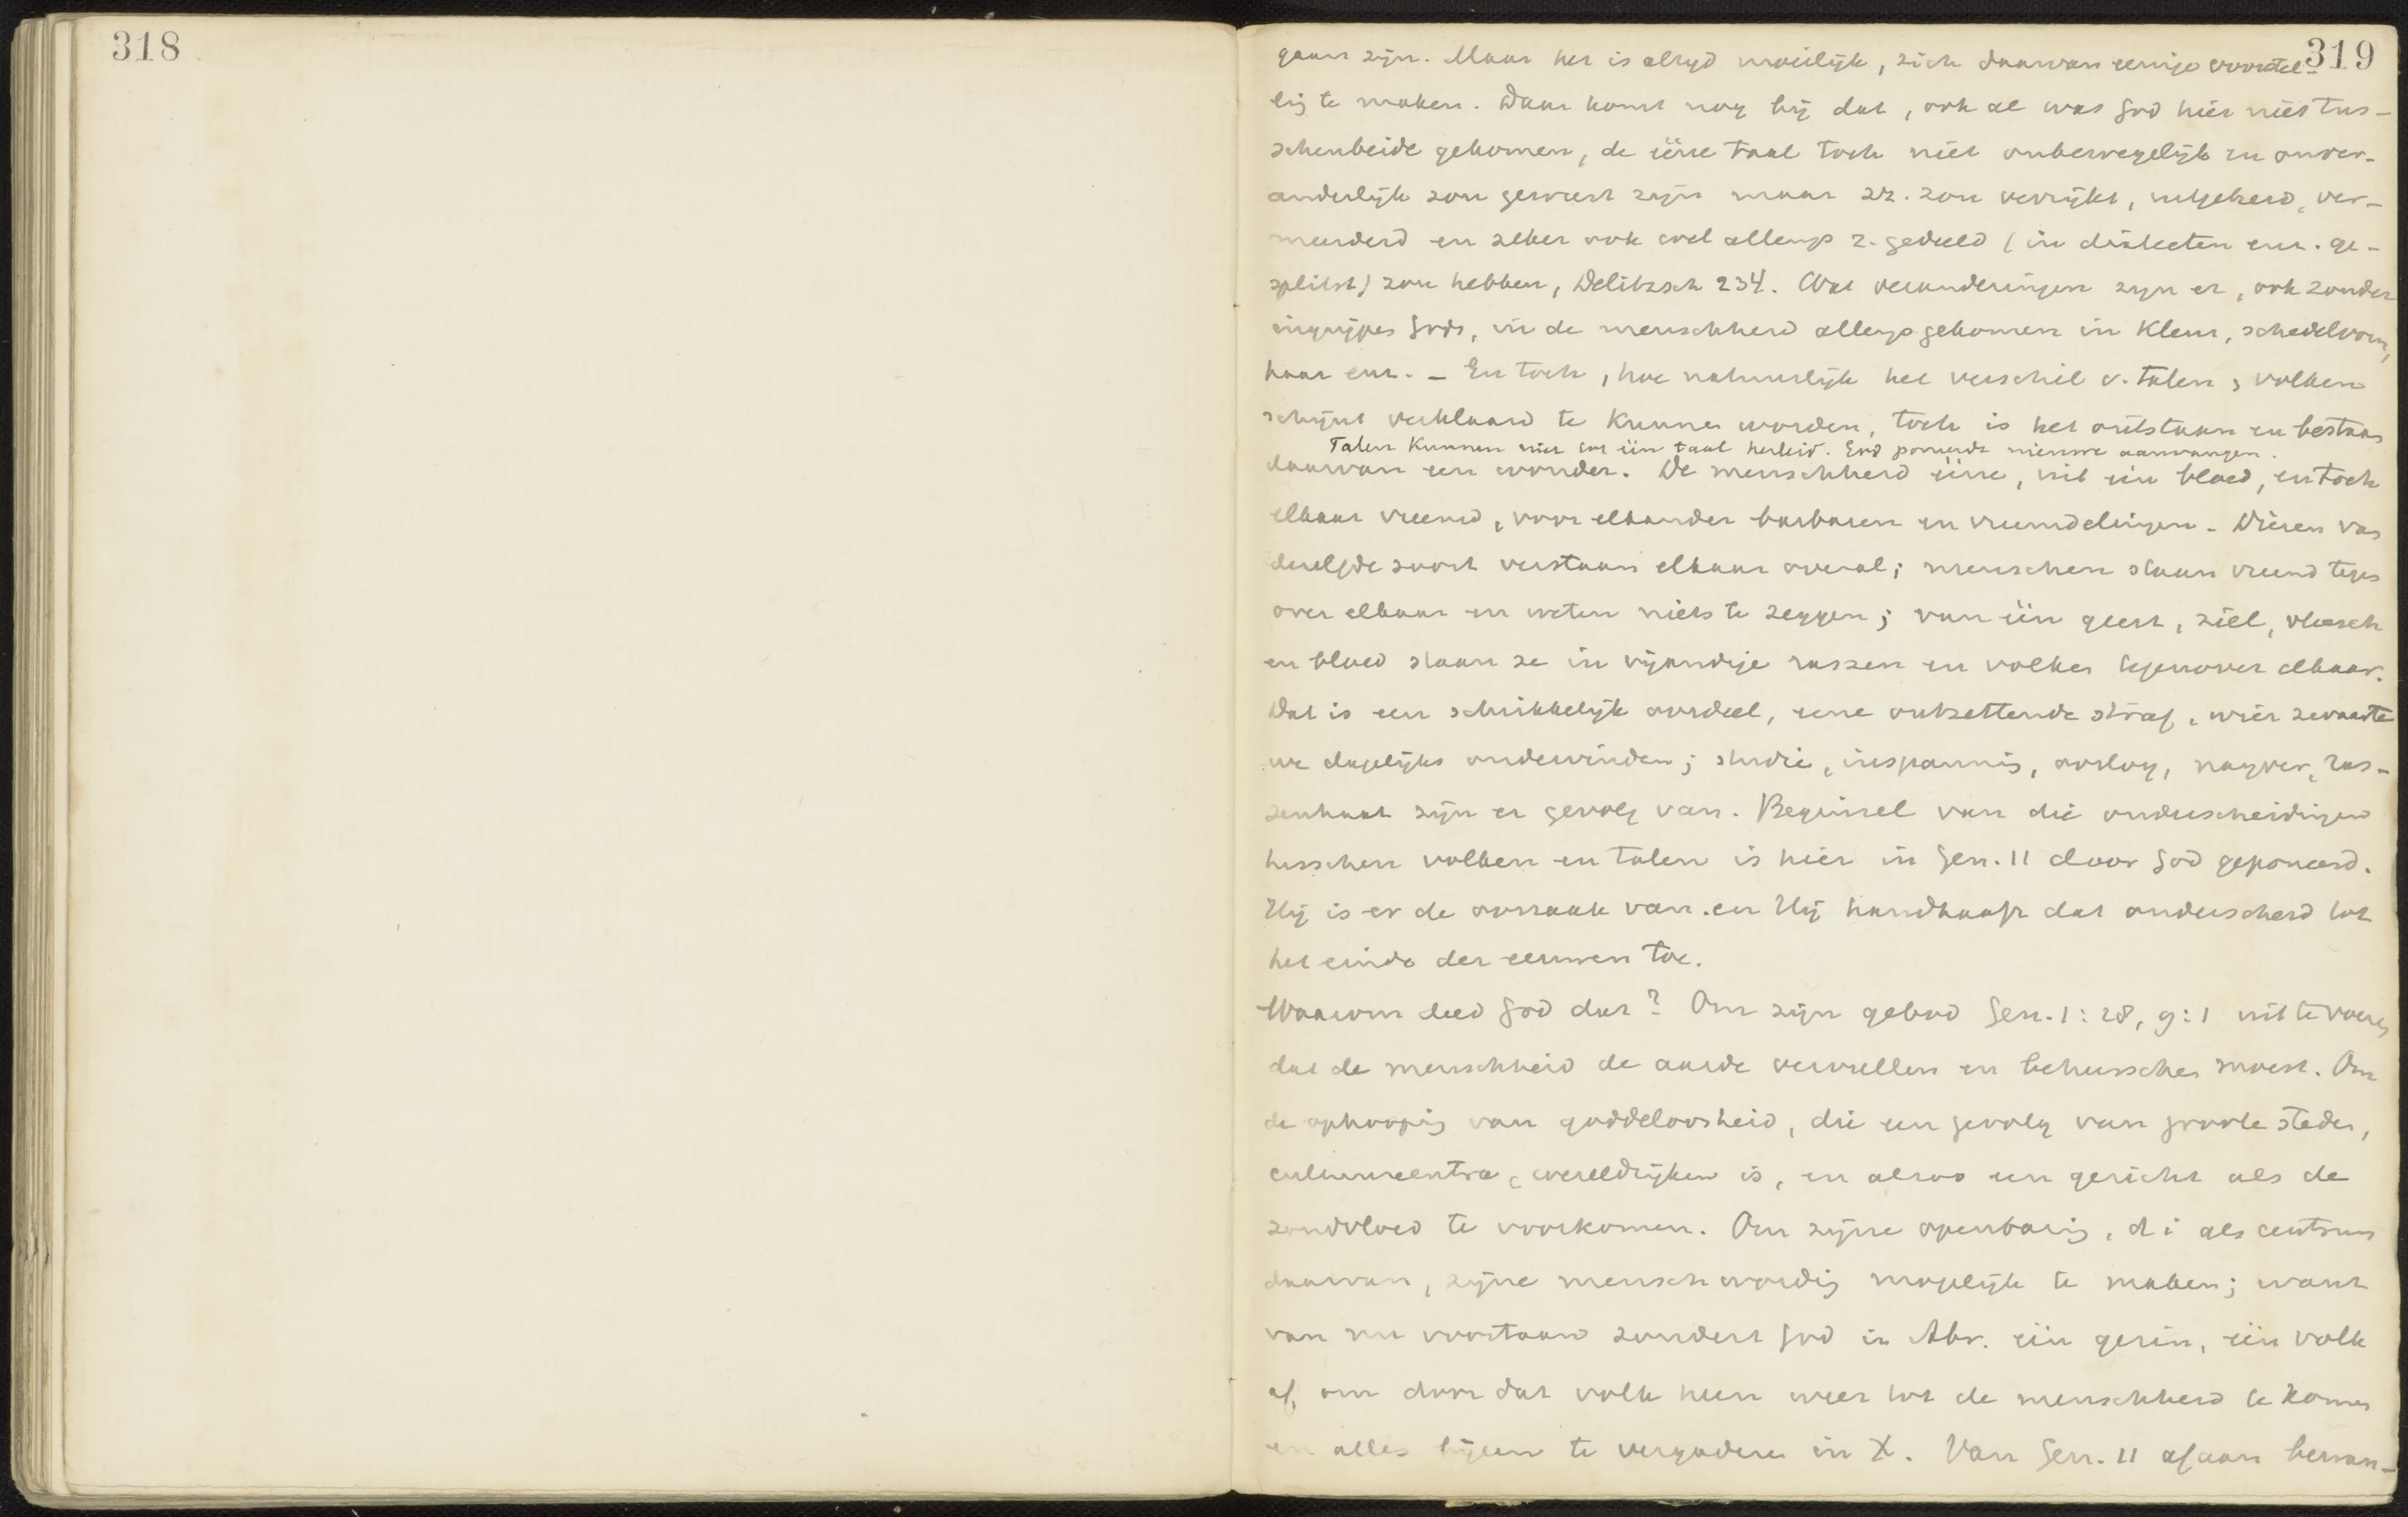 318
319
gaan zijn. Maar het is altijd moeilijk, zich daarvan eenige voorstel-
ling te maken. Daar komt nog bij dat, ook al was God hier niet tus-
schenbeide gekomen, de ééne taal toch niet onbewegelijk en onver-
anderlijk zou geweest zijn maar zich zou verrijkt, uitgebreid, ver-
meerderd en zeker ook wel allengs z. gedeeld (in dialecten enz. ge-
splitst) zou hebben, Delitzsch 234. Wat veranderingen zijn er, ook zonder
ingrijpen Gods, in de menschheid allengs gekomen in kleur, schedelvorm,
haar enz. – En toch, hoe natuurlijk het verschil v. talen, volken
schijnt verklaard te kunnen worden, toch is het ontstaan en bestaan
Talen kunnen niet tot één taal herleid. God poneerde nieuwe aanvangen.
daarvan een wonder. De menschheid ééne, uit één bloed, en toch
elkaar vreemd, voor elkander barbaren en vreemdelingen. Dieren van
dezelfde soort verstaan elkaar overal; menschen staan vreemd tegen
over elkaar en weten niets te zeggen; van één geest, ziel, vleesch
en bloed staan ze in vijandige rassen en volken tegenover elkaar.
Dat is een schrikkelijk oordeel, eene ontzettende straf, wier zwaarte
we dagelijks ondervinden; studie, inspanning, oorlog, naijver, ras-
senhaat zijn er gevolg van. Beginsel van die onderscheidingen
tusschen volken en talen is hier in Gen. 11 door God geponeerd.
Hij is er de oorzaak van. en Hij handhaaft dat onderscheid tot
het einde der eeuwen toe.
Waarom deed God dat? Om zijn gebod Gen. 1:28, 9:1 uit te voeren
dat de menschheid de aarde vervullen en beheerschen moest. Om
de ophooping van goddeloosheid, die een gevolg van groote steden,
cultuurcentra, wereldrijken is, en alzoo een gericht als de
zondvloed te voorkomen. Om zijne openbaring, d i als centrum
daarvan, zijne menschwording mogelijk te maken; want
van nu voortaan zondert God in Abr. één gezin, één volk
af, om door dat volk heen weer tot de menschheid te komen
en alles bijeen te vergaderen in X. Van Gen. 11 af aan bewan-